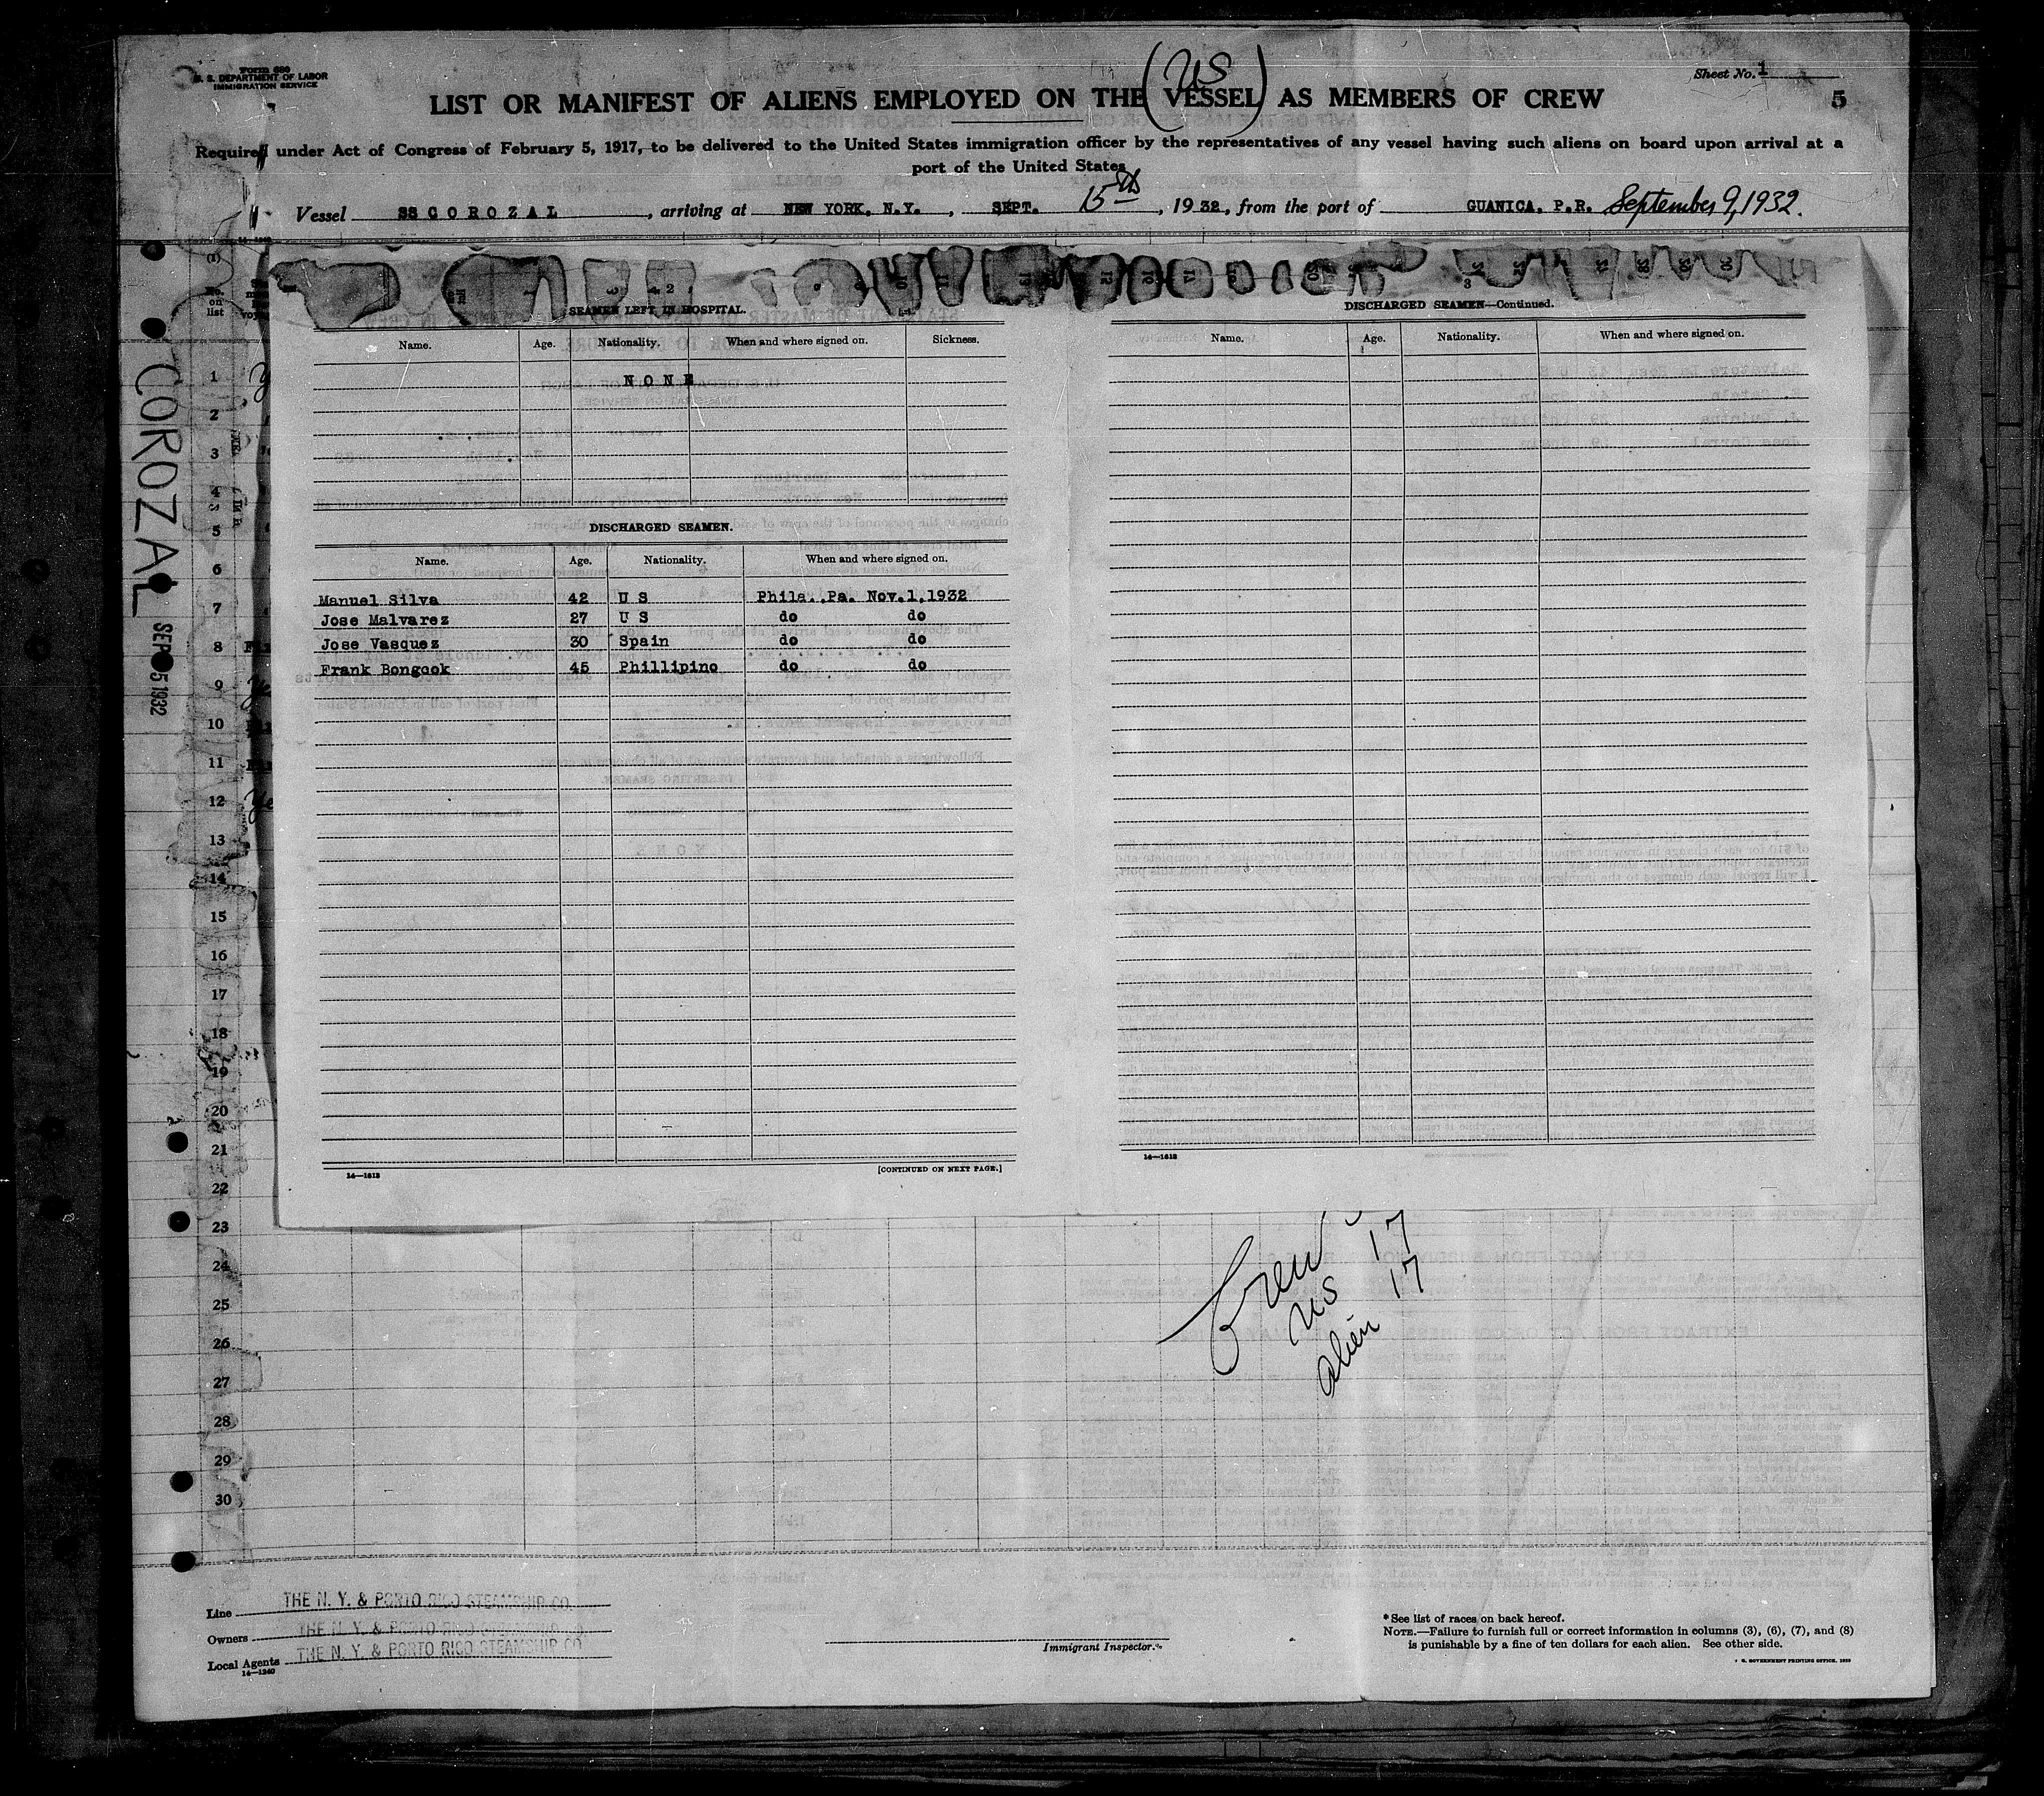 Form 680
U. S. DEPARTMENT OF LABOR
IMMIGRATION SERVICE
Sheet No. 1
5
(US)
LIST OR MANIFEST OF ALIENS EMPLOYED ON THE VESSEL AS MEMBERS OF CREW
Required under Act of Congress of February 5, 1917, to be delivered to the United States immigration officer by the representatives of any vessel having such aliens on board upon arrival at a
port of the United States
Vessel SS COROZAL, arriving at NEW YORK, N.Y., SEPT. 15th, 1932, from the port of GUANICA, P.R. September 9, 1932.
(1)
No.
on
list
COROZAL
SEP 5 1932
SEAMEN LEFT IN HOSPITAL.
Name. Age. Nationality. When and where signed on. Sickness.
NONE
DISCHARGED SEAMEN.
Name. Age. Nationality. When and where signed on.
Manuel Silva 42 U S Phila., Pa. Nov.1,1932
Jose Malvarez 27 U S do do
Jose Vasquez 30 Spain do do
Frank Bongcok 45 Phillipino do do
14—1613
[CONTINUED ON NEXT PAGE.]
3
DISCHARGED SEAMEN—Continued.
Name. Age. Nationality. When and where signed on.
14—1613
1
2
3
4
5
6
7
8
9
10
11
12
13
14
15
16
17
18
19
20
21
22
23
24
25
26
27
28
29
30
Crew
US 17
alien 17
Line THE N. Y. & PORTO RICO STEAMSHIP CO.
Owners THE N. Y. & PORTO RICO STEAMSHIP CO
Local Agents THE N. Y. & PORTO RICO STEAMSHIP CO
14—1240
Immigrant Inspector.
* See list of races on back hereof.
NOTE.—Failure to furnish full or correct information in columns (3), (6), (7), and (8)
is punishable by a fine of ten dollars for each alien. See other side.
GOVERNMENT PRINTING OFFICE